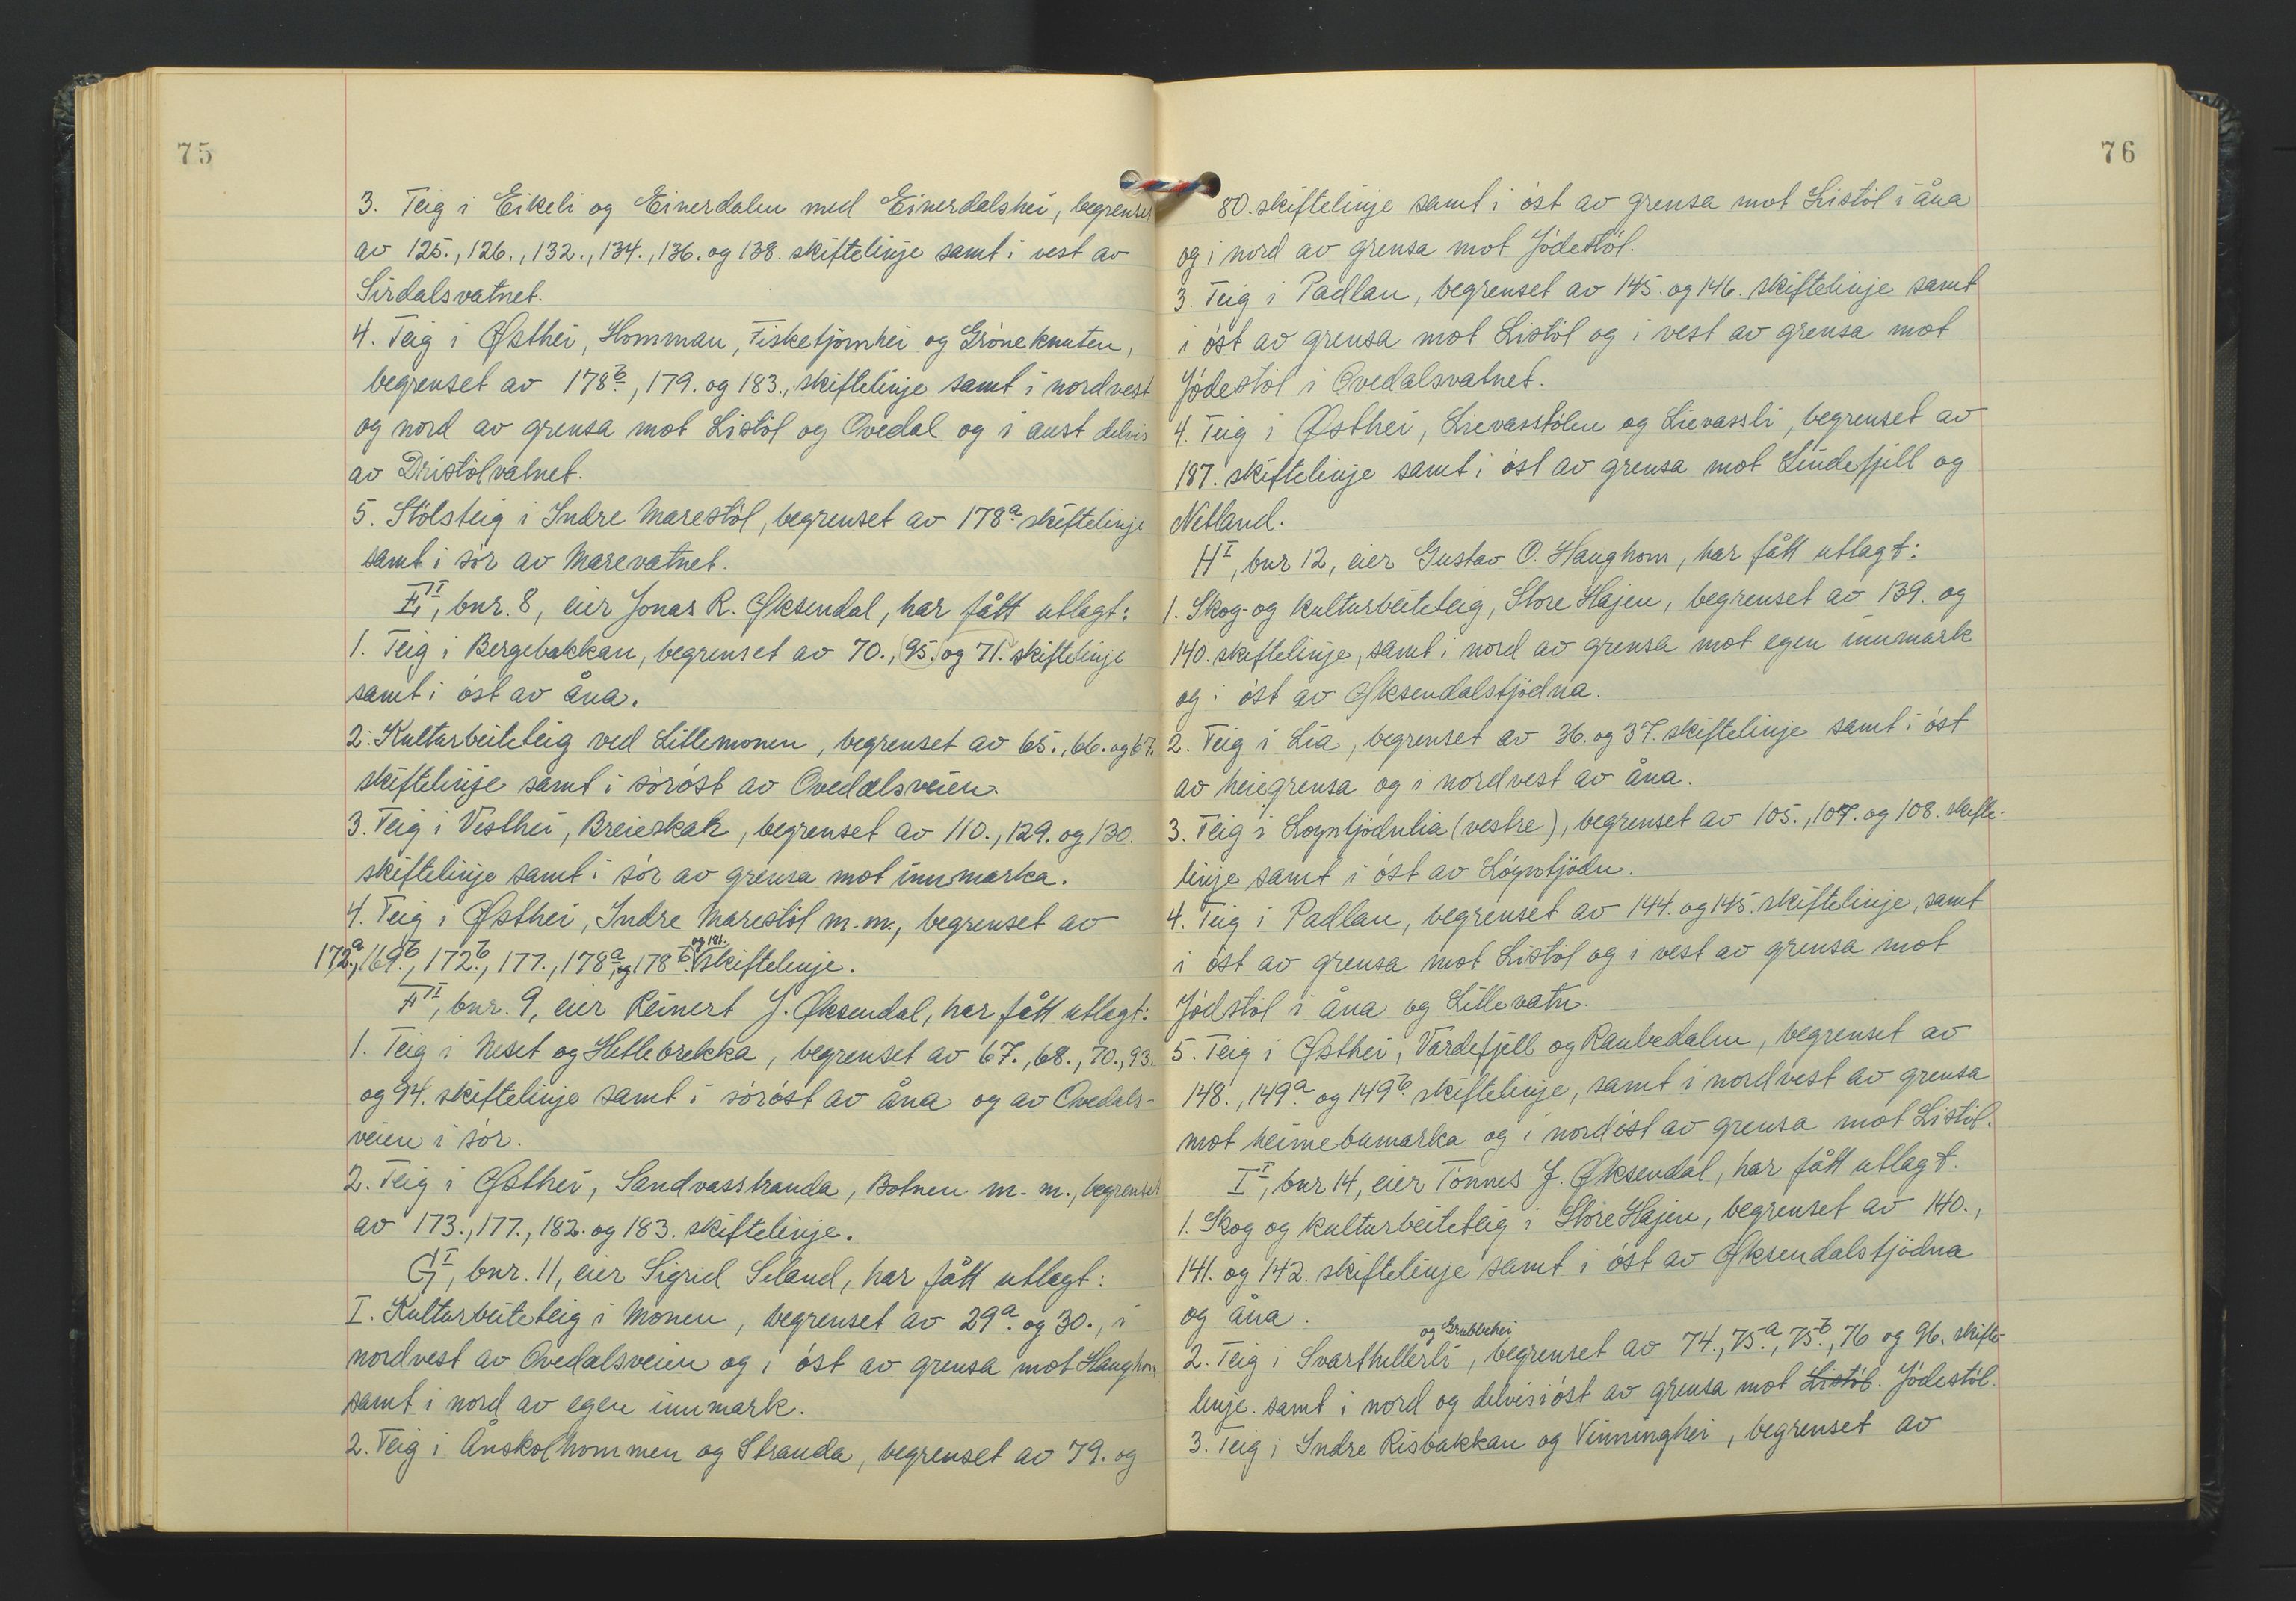 75
3. Teig i Eikeli og Einerdalen med Einerdalshei, begrenset
av 125., 126., 132., 134., 136. og 138. skiftelinje samt i vest av
Sirdalsvatnet.
4. Teig i Østhei, Homman, Fisketjørnhei og Grøneknuten,
begrenset av 178b., 179. og 183., skiftelinje samt i nordvest
og nord av grensa mot Listøl og Ovedal og i aust delvis
av Dristølvatnet.
5. Stølsteig i Indre Marestøl, begrenset av 178a. skiftelinje
samt i sør av Marevatnet.
E I, bnr. 8, eier Jonas R. Øksendal, har fått utlagt:
1. Teig i Bergebakkan, begrenset av 70., (95.) og 71. skiftelinje
samt i øst av åna.
2. Kulturbeiteteig ved Littlemonen, begrenset av 65., 66. og 67.
skiftelinje samt i sørøst av Ovedalsveien.
3. Teig i Vesthei, Breieskar, begrenset av 110., 129. og 130.
skiftelinje samt i sør av grensa mot innmarka.
4. Teig i Østhei, Indre Marestøl m.m., begrenset av
172a., 169b., 172b., 177., 178a., og 178b. og 181. skiftelinje.
F I, bnr. 9, eier Reinert J. Øksendal, har fått utlagt:
1. Teig i Neset og Hetlebrekka, begrenset av 67., 68., 70., 93.
og 94. skiftelinje samt i sørøst av åna og av Ovedals-
veien i sør.
2. Teig i Østhei, Sandvasstranda, Botnen m.m., begrenset
av 173., 177., 182. og 183. skiftelinje.
G I, bnr. 11, eier Sigrid Seland, har fått utlagt:
I. Kulturbeiteteig i Monen, begrenset av 29a. og 30., i
nordvest av Ovedalsveien og i øst av grensa mot Haughom
samt i nord av egen innmark.
2. Teig i Ånskolhommen og Stranda, begrenset av 79. og
76
80. skiftelinje samt i øst av grensa mot Listøl i åna
og i nord av grensa mot Jødestøl.
3. Teig i Padlan, begrenset av 145. og 146. skiftelinje samt
i øst av grensa mot Listøl og i vest av grensa mot
Jødestøl i Ovedalsvatnet.
4. Teig i Østhei, Lievasstølen og Lievassli, begrenset av
187. skiftelinje samt i øst av grensa mot Lindefjell og
Netland.
H I, bnr 12, eier Gustav O. Haughom, har fått utlagt:
1. Skog- og kulturbeiteteig, Store Hajen, begrenset av 139. og
140. skiftelinje, samt i nord av grensa mot egen innmark
og i øst av Øksendalstjødna.
2. Teig i Lia, begrenset av 36. og 37. skiftelinje samt i øst
av heiegrensa og i nordvest av åna.
3. Teig i Løgntjødnlia (vestre), begrenset av 105., 107. og 108. skifte-
linje samt i øst av Løgntjødn.
4. Teig i Padlan, begrenset av 144. og 145. skiftelinje, samt
i øst av grensa mot Listøl og i vest av grensa mot
Jødstøl i åna og Lillevatn.
5. Teig i Østhei, Vardefjell og Raubedalen, begrenset av
148., 149a. og 149b. skiftelinje, samt i nordvest av grensa
mot heimebumarka og i nordøst av grensa mot Listøl.
I I, bnr 14, eier Tønnes J. Øksendal, har fått utlagt.
1. Skog og kulturbeiteteig i Store Hajen, begrenset av 140.,
141. og 142. skiftelinje samt i øst av Øksendalstjødna
og åna.
2. Teig i Svarthellerli og Grubbehei, begrenset av 74., 75a., 75b., 76 og 96. skifte-
linje. samt i nord og delvis i øst av grensa mot Listøl. Jødestøl.
3. Teig i Indre Risbakkan og Vinninghei, begrenset av